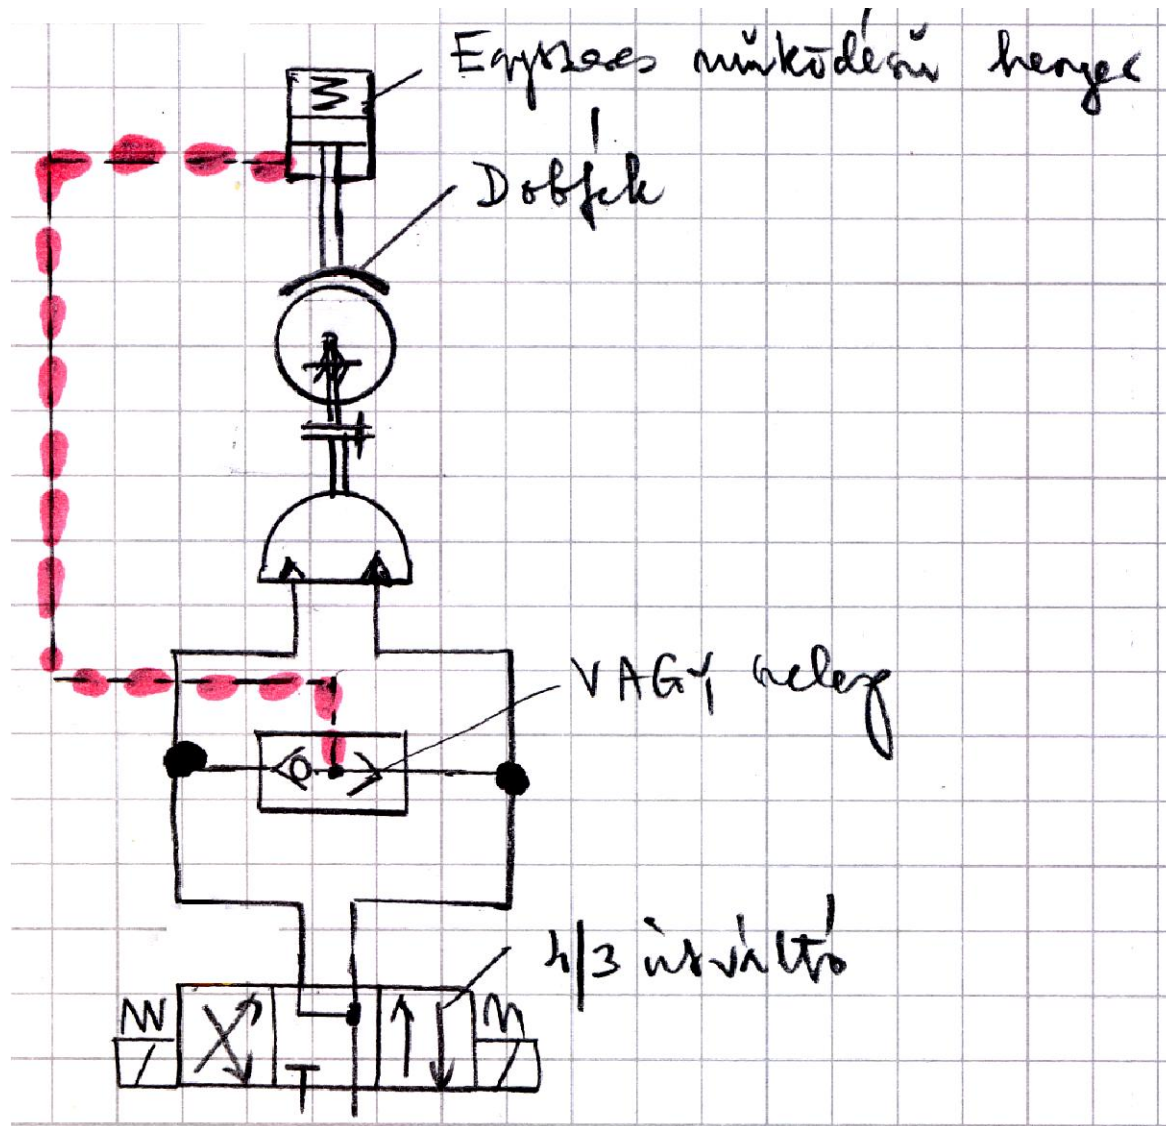 Egyszeres működésű henger
Dobfék
VAGY szelep
4/3 útváltó